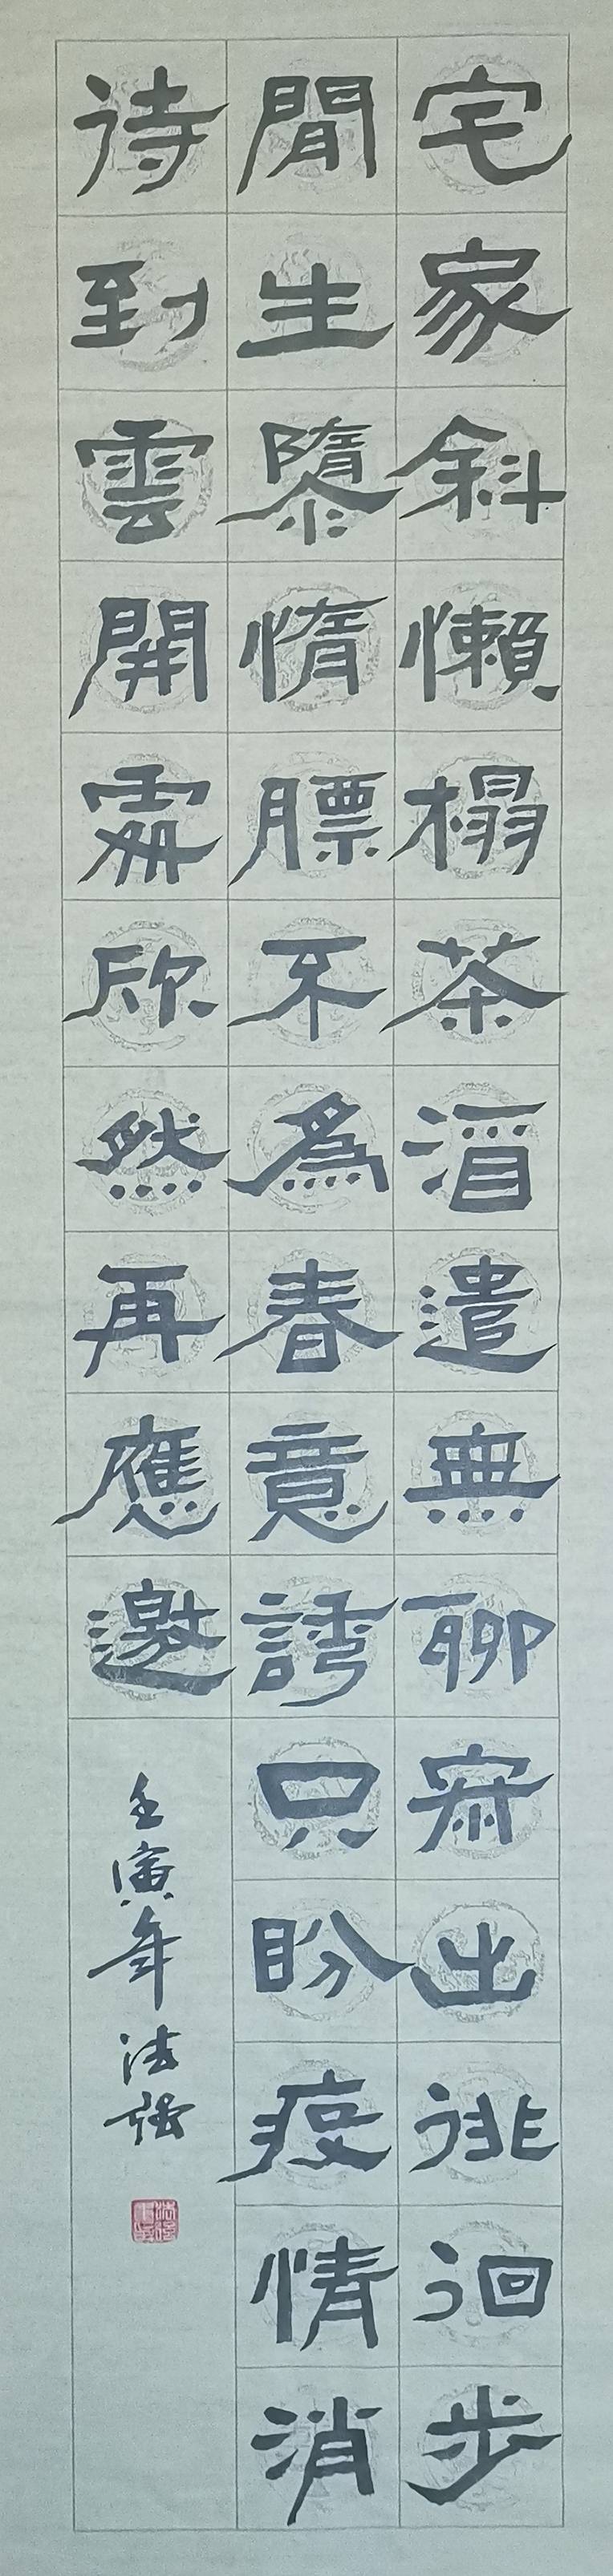 宅家斜懶榻茶酒遣無聊寂出徘徊步
閒生隳惰膘不為春意誘只盼疫情消
待到雲開霽欣然再應邀
壬寅年法强